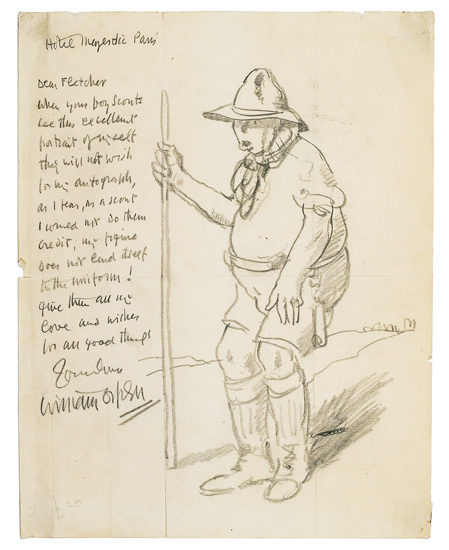 Hotel Majestic Paris
Dear Fletcher
When your boy scouts
see this excellent
portrait of myself
they will not wish
for my autograph,
as I fear, as a scout
I would not do them
credit, my figure
does not lend itself
to the uniform!
Give them all my
love and wishes
for all good things
Yours ever
William Orpen